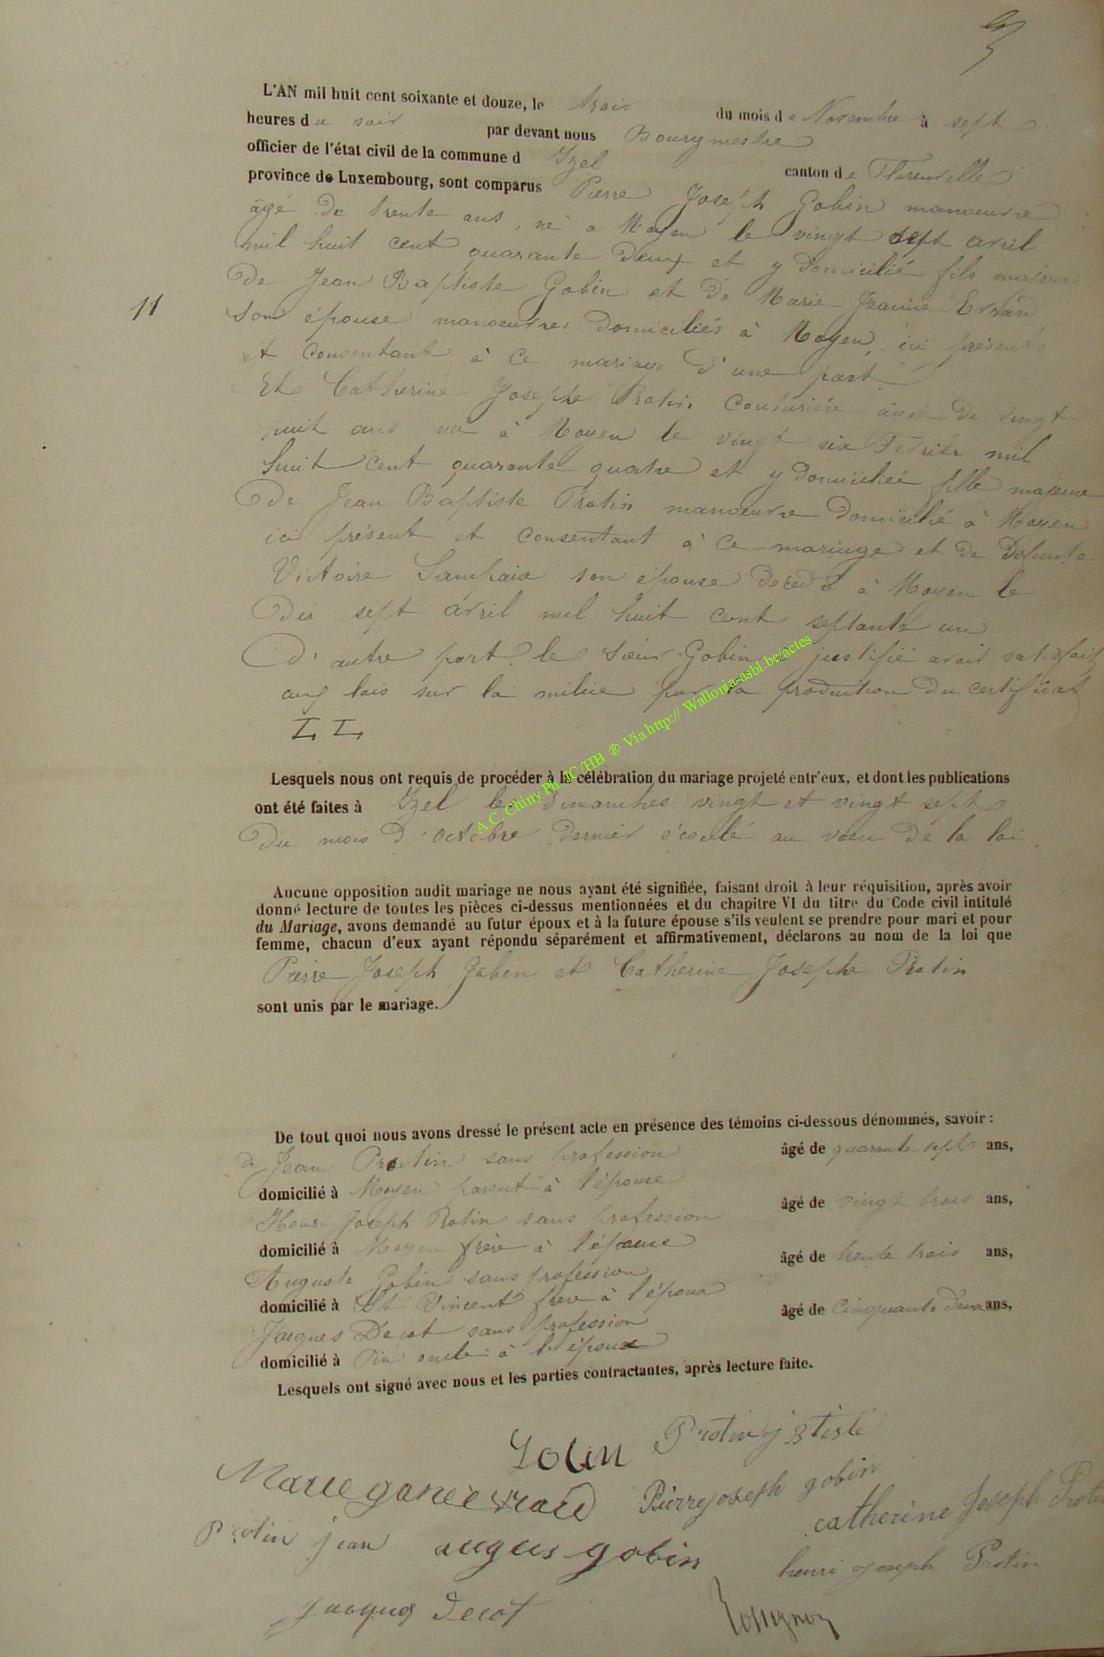 L'AN mil huit cent soixante et douze, le trois du mois de Novembre à sept
heures du soir par devant nous Bourgmestre
officier de l'état civil de la commune d Izel canton de Florenville
province de Luxembourg, sont comparus Pierre Joseph Gobin manoeuvre
âgé de trente ans, né a Moyen le vingt sept avril
mil huit cent quarante deux et y domicilié fils majeur
de Jean Baptiste Gobin et de Marie Jeanne Evrard
son épouse manoeuvres domiciliés à Moyen, ici présents
et consentant à ce mariage d'une part
11
Et Catherine Josephe Protin Couturière âgée de vingt
huit ans née à Moyen le vingt six Février mil
huit cent quarante quatre et y domiciliée fille majeure
de Jean Baptiste Protin manoeuvre domicilié à Moyen
ici présent et consentant à ce mariage et de Défunte
Victoire son épouse décédée à Moyen le
dix sept avril mil huit cent septante un
D'autre part. le Sieur Gobin a justifié avoir satisfait
aux lois sur la milice par la production du certificat
L L
Lesquels nous ont requis de procéder à la célébration du mariage projeté entr'eux, et dont les publications
ont été faites à Izel les dimanches vingt et vingt sept
du mois d'octobre dernier écoulé au voeu de la loi.
Aucune opposition audit mariage ne nous ayant été signifiée, faisant droit à leur réquisition, après avoir
donné lecture de toutes les pièces ci-dessus mentionnées et du chapitre VI du titre du Code civil intitulé
du Mariage, avons demandé au futur époux et à la future épouse s'ils veulent se prendre pour mari et pour
femme, chacun d'eux ayant répondu séparément et affirmativement, déclarons au nom de la loi que
Pierre Joseph Gobin et Catherine Josephe Protin
sont unis par le mariage.
De tout quoi nous avons dressé le présent acte en présence des témoins ci-dessous dénommés, savoir :
de Jean Protin sans profession âgé de quarante sept ans,
domicilié à Moyen parent à l'épouse
Henri Joseph Protin sans profession âgé de vingt trois ans,
domicilié à Moyen frère à l'épouse
Auguste Gobin sans profession âgé de trente trois ans,
domicilié à St Vincent frère à l'époux
Jacques Decot sans profession âgé de Cinquante deux ans,
domicilié à Pin oncle à l'époux
Lesquels ont signé avec nous et les parties contractantes, après lecture faite.
Gobin Protin j Btiste
Marie gane evrard Pierre joseph gobin
catherine Joseph Protin
Protin jean augus gobin henri joseph Protin
jacques Decot Rossignon
A.C. Chiny Ph. JC/HB ® Via http:// Wallonia-asbl.be/actes